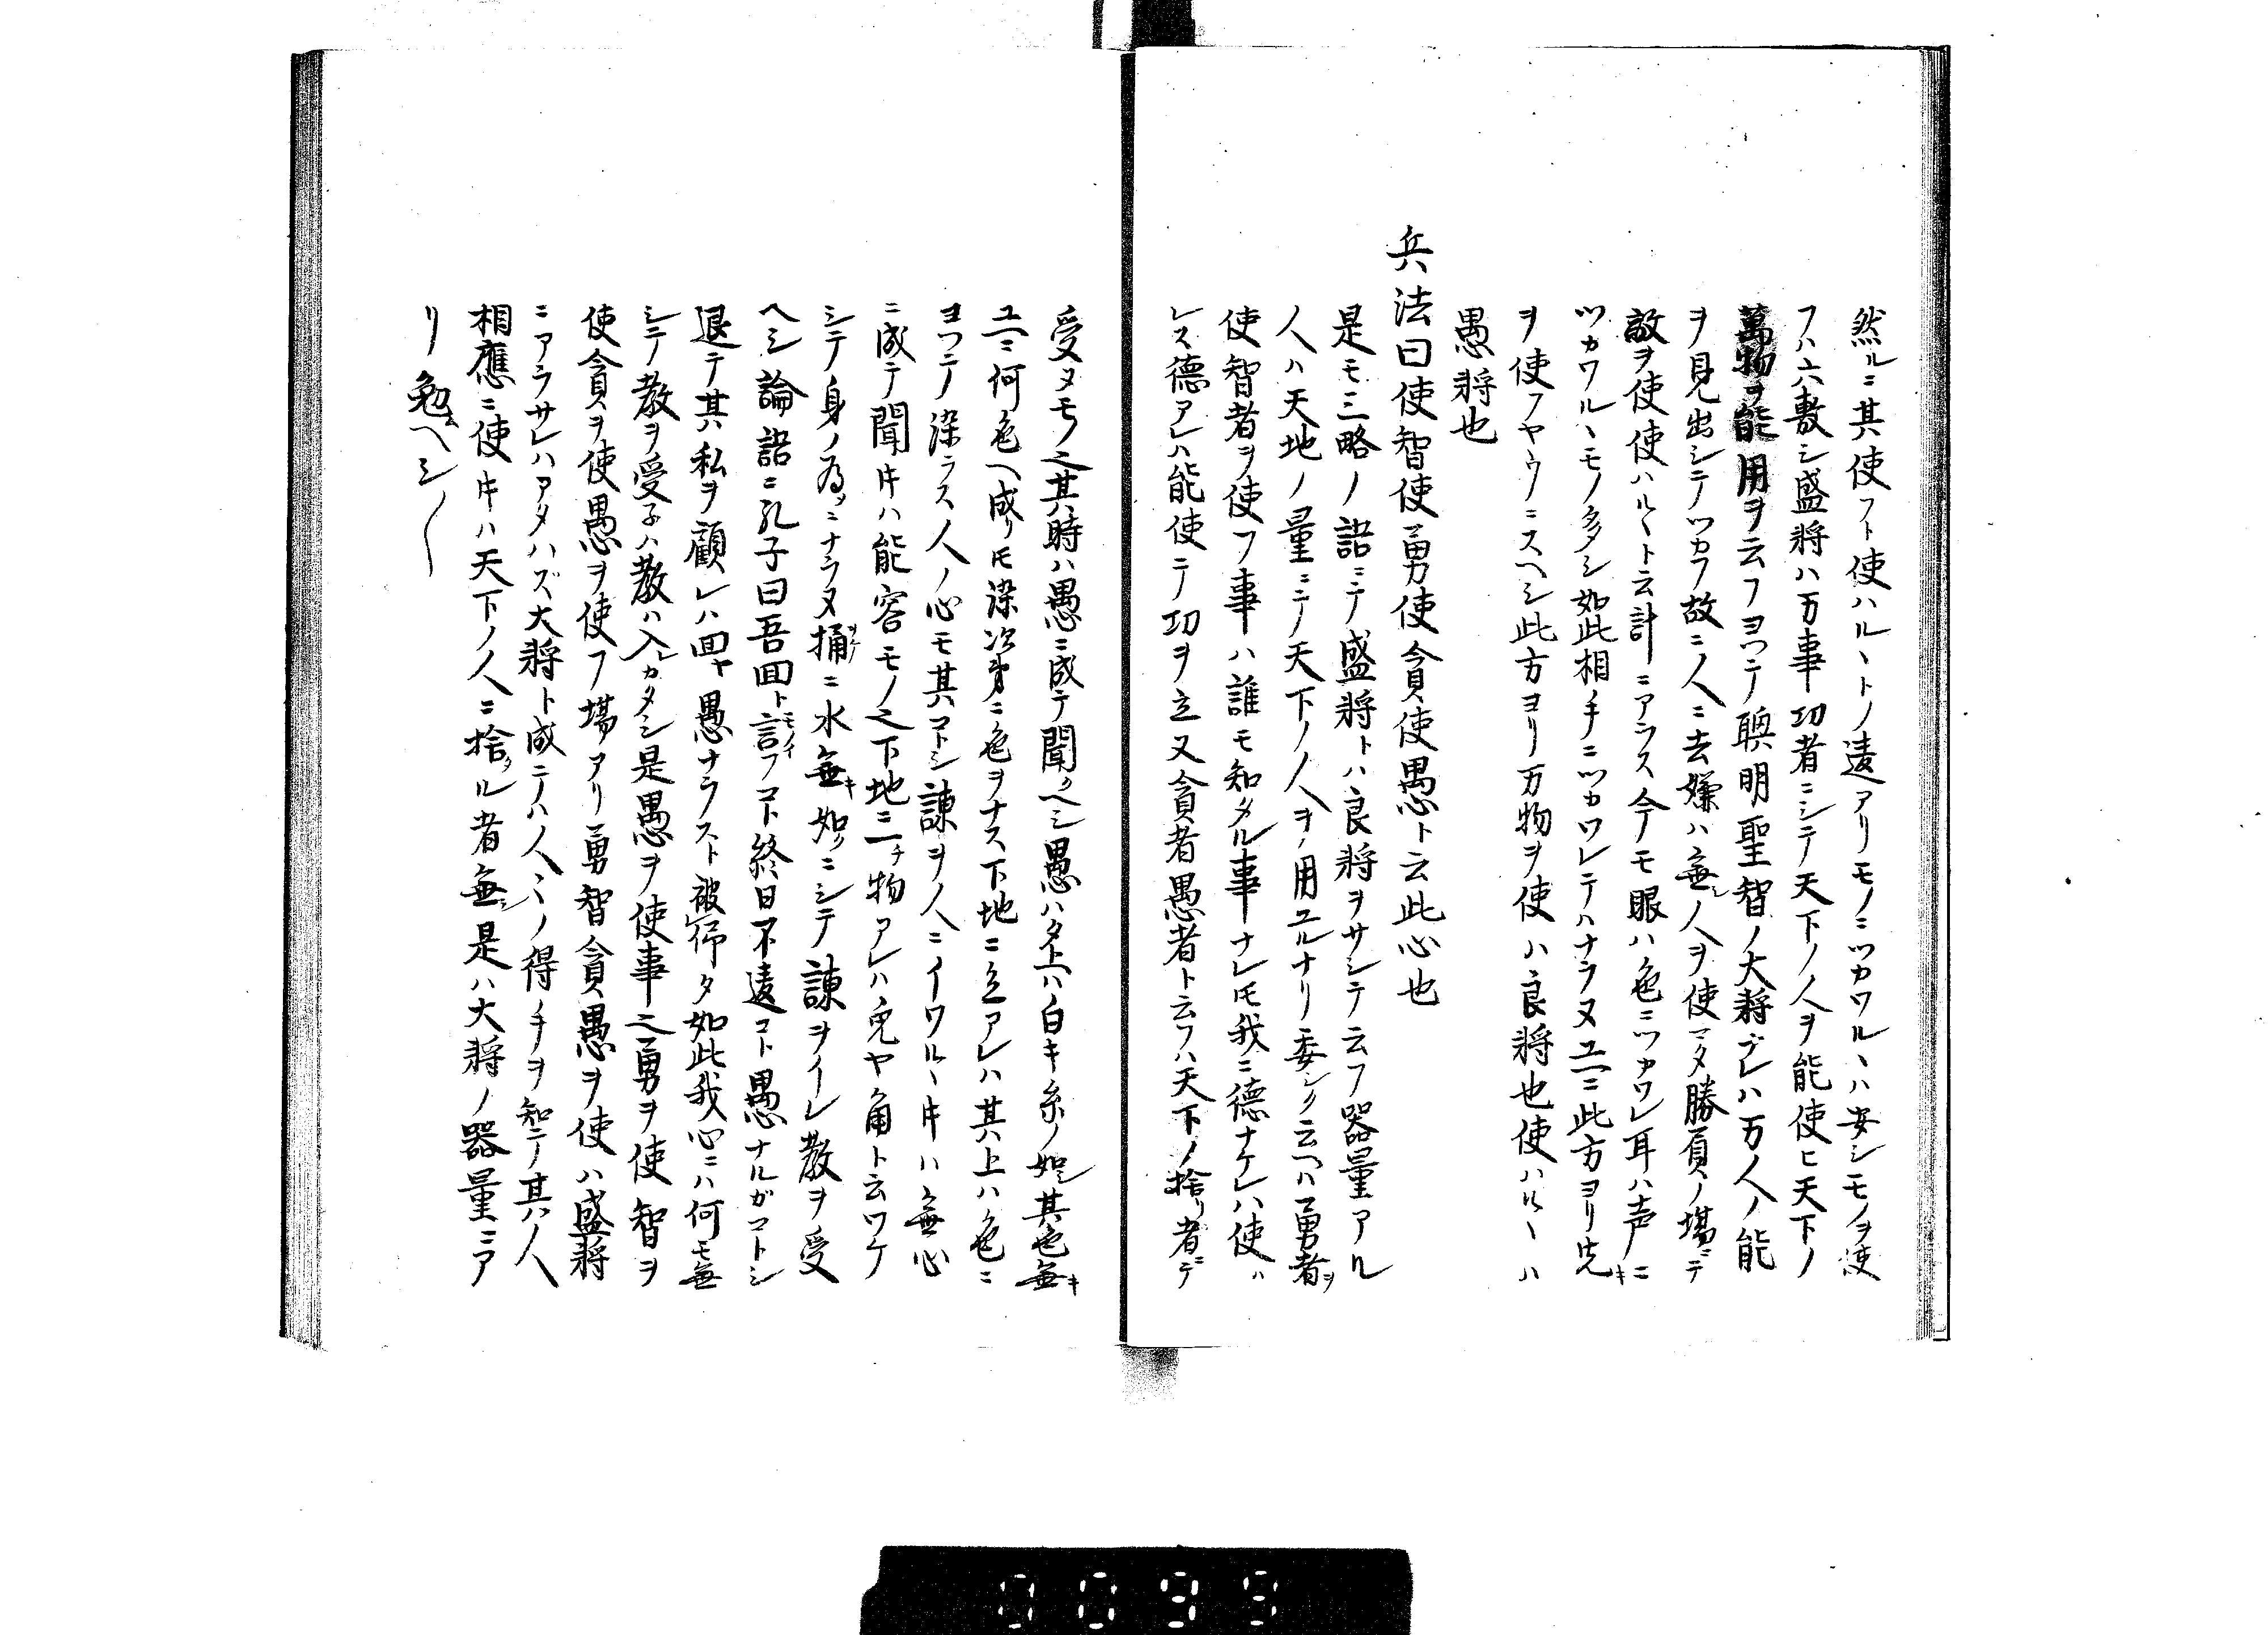 然ルニ其使フト使ハルヽトノ違アリモノニツカワルヽハ安シモノヲ使
フハ六敷シ盛將ハ万事功者ニシテ天下ノ人ヲ能使ヒ天下ノ
萬物ヲ能用ヲ云フヨツテ聰明聖智ノ大將デレハ万人ノ能
ヲ見出シテツカフ故ニ人ニ去嫌ハ無シ人ヲ使マタ勝負ノ場ニテ
敵ヲ使使ハルヽト云計ニアラス今モ眼ハ色ニツカワレ耳ハ声ニ
ツカワルヽモノ多シ如此相手ニツカワレテハナラヌユヘニ此方ヨリ先キ
ヲ使フヤウニスヘシ此方ヨリ万物ヲ使ハ良將也使ハルヽハ
愚將也
兵法曰使智使勇使貪使愚ト云此心也
是モ三略ノ語ニテ盛將トハ良將ヲサシテ云フ器量アル
人ハ天地ノ量ニテ天下ノ人ヲ用ユルナリ委シク云ヘハ勇者ヲ
使智者ヲ使フ事ハ誰モ知タル事ナレ𪜈我ニ德ナケレハ使ハ
レス德アレハ能使テ功ヲ立又貪者愚者ト云フハ天下ノ捨リ者ニテ
受ヌモノ也其時ハ愚ニ成テ聞クヘシ愚ハタトヘハ白キ糸ノ如シ其色無キ
ユヘニ何色ヘ成リ𪜈染次第ニ色ヲナス下地ニ色アレハ其上ハ色ニ
ヨツテ染ラス人ノ心モ其コトシ諫ヲ人ニイワルヽ片ハ無心
ニ成テ聞片ハ能容モノ也下地ニ一チ物アレハ兎ヤ角ト云ワケ
シテ身ノ為メニナラヌ桶ニ水無キ如クニシテ諫ヲイレ教ヲ受
ヘシ論語ニ孔子曰吾回ト言フコト終日不違コト愚ナルガコトシ
退テ其私ヲ顧レハ回ヤ愚ナラスト被仰タ如此我心ニハ何モ無
シテ教ヲ受子ハ教ハ入レカタシ是愚ヲ使事也勇ヲ使智ヲ
使貪ヲ使愚ヲ使フ場アリ勇智貪愚ヲ使ハ盛將
ニアラサレハアタハズ大將ト成テハ人々ノ得手ヲ知テ其人
相應ニ使片ハ天下ノ人ニ捨タル者無シ是ハ大將ノ器量ニア
リ勉ムヘシ〱